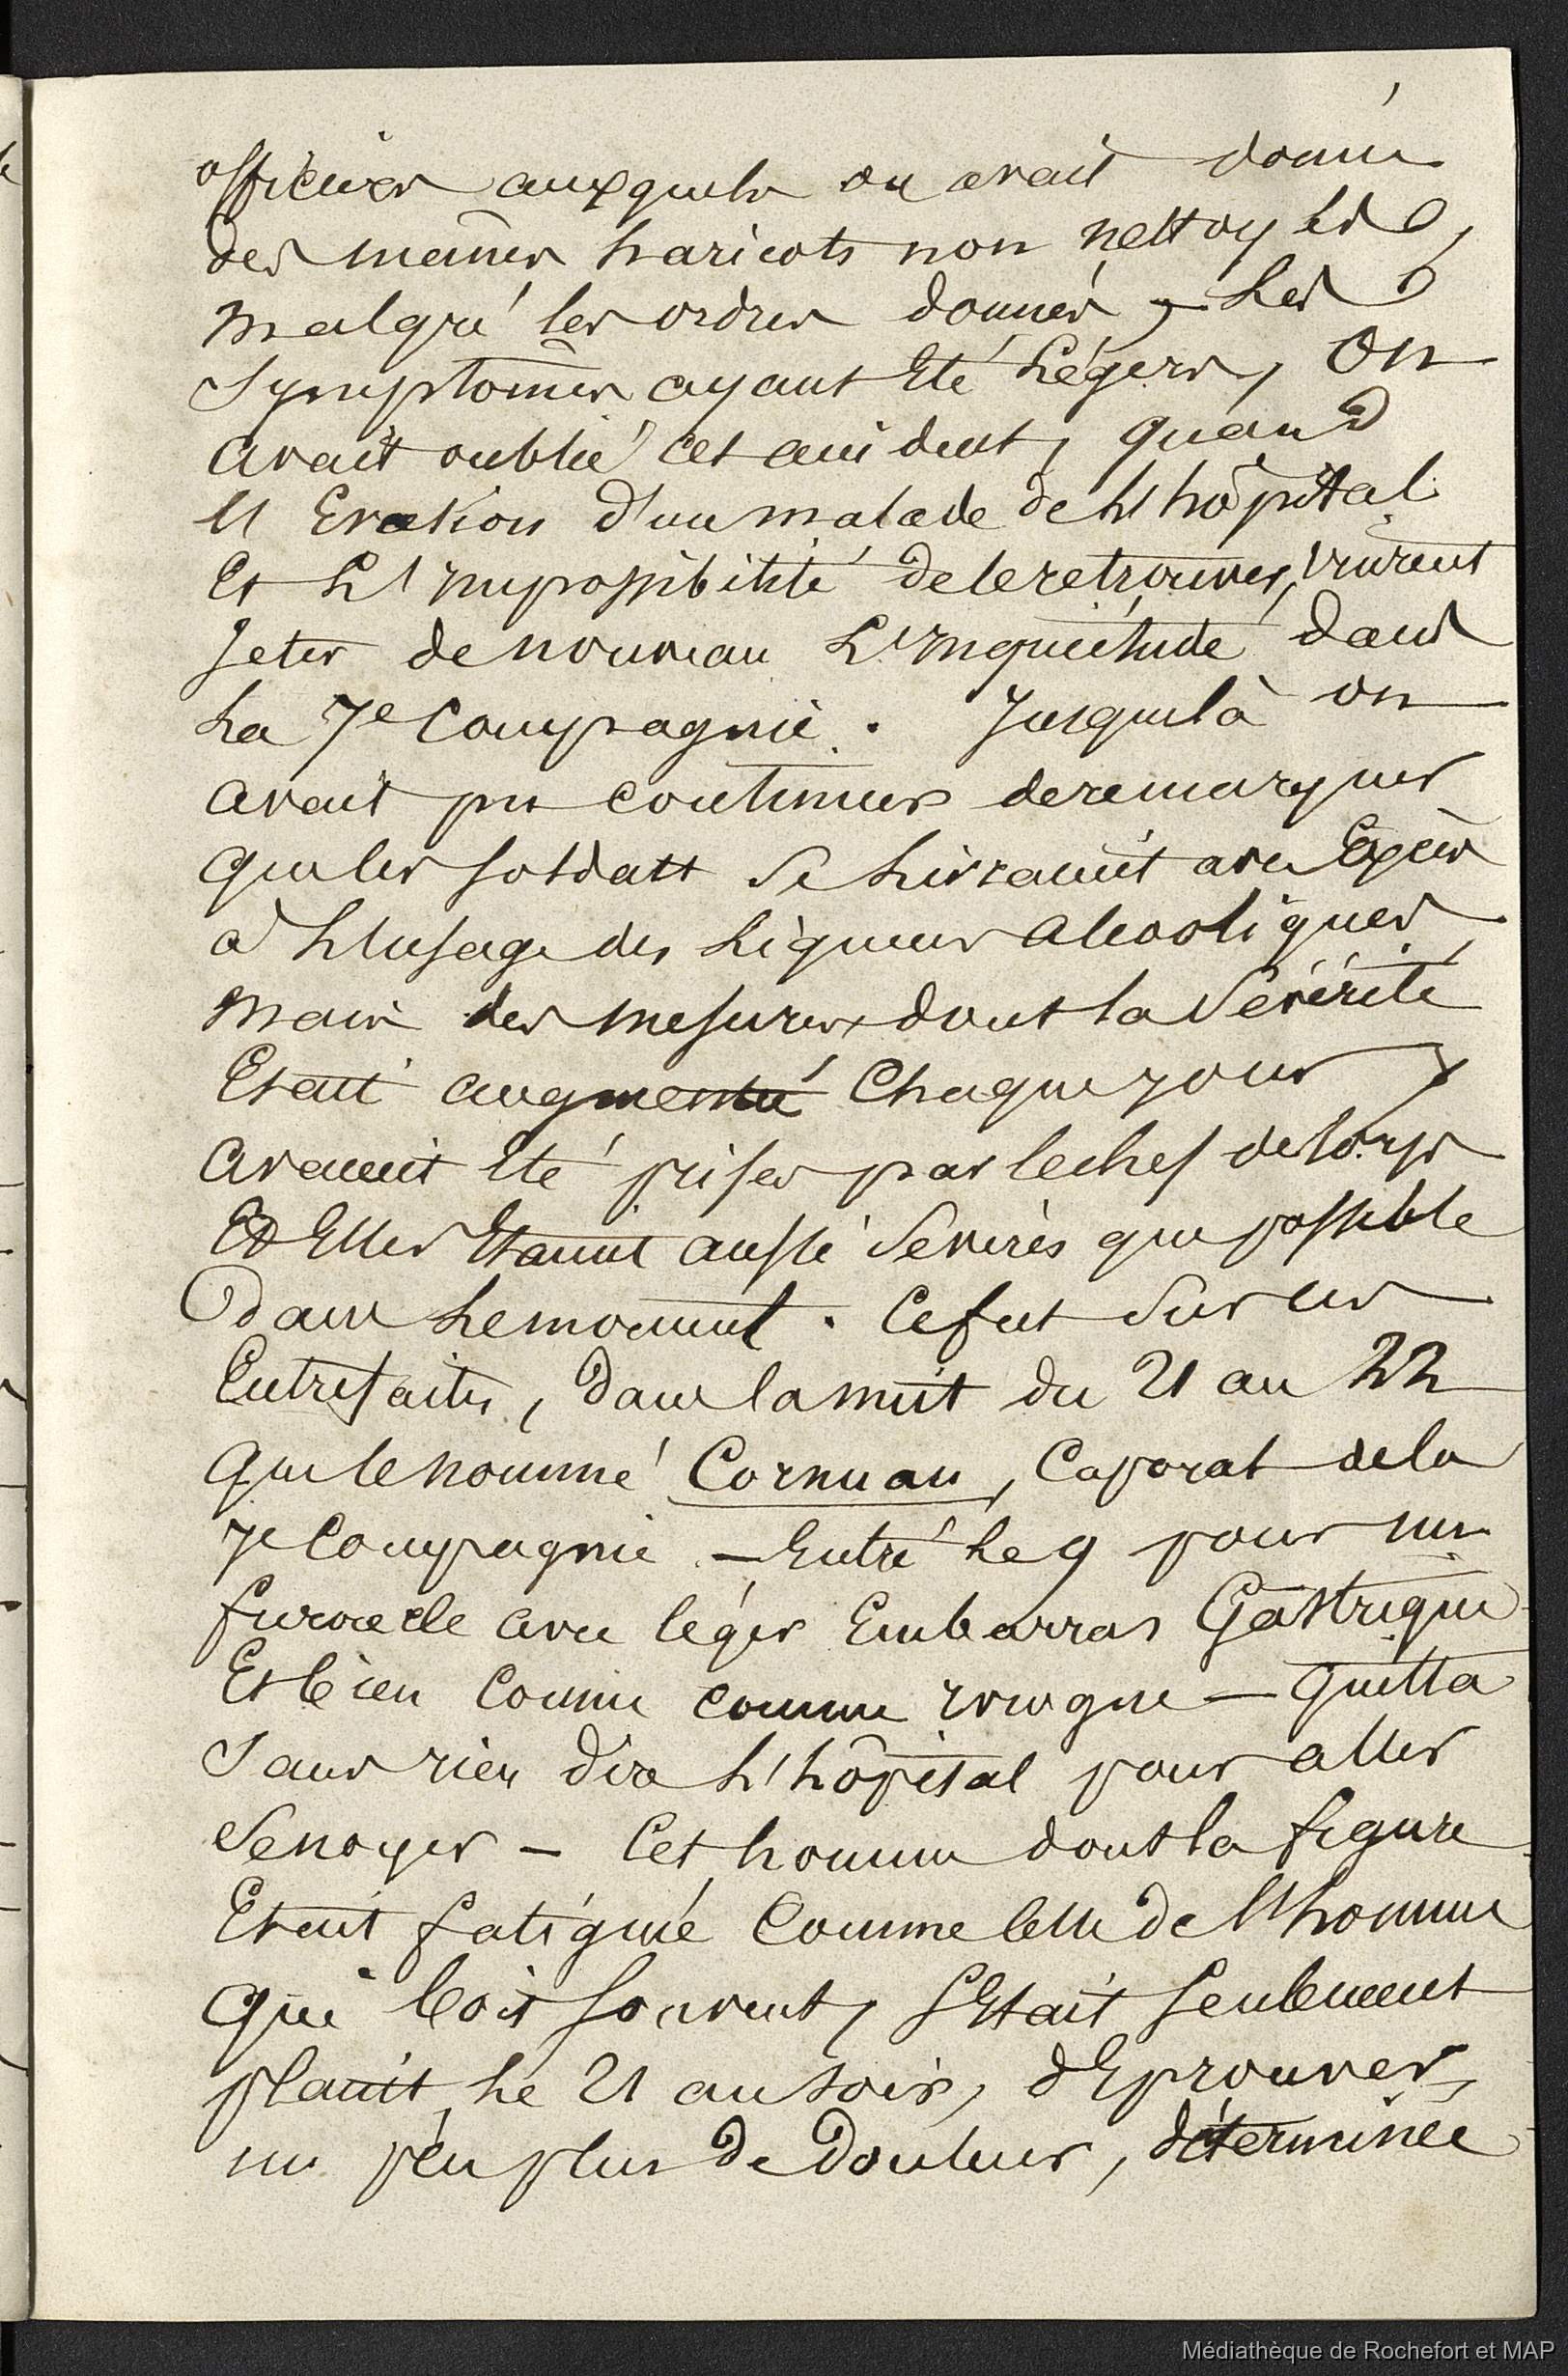 officiers auxquels on avait donné
des mêmes haricots non nettoyés,
malgré les ordres donnés, Les
Symptômes ayant Eté Légers, On
avait oublié cet accident, quand
l'Evasion d'un malade de L'hôpital
Et L'Impossibilité de le retrouver, vinrent
Jeter de nouveau L'Inquiétude dans
La 7e Compagnie. Jusque là on
avait pu continuer de remarquer
que les soldats Se Livraient avec Excès
à L'usage des Liqueurs alcooliques,
mais des mesures dont la Sévérité
Etait augmenté Chaque jour,
avaient Eté prises par le chef de Corps
Et Elles Etaient aussi Sévères que possible
dans Le moment. Ce fut Sur ces
Entrefaites, dans la nuit du 21 au 22
que le nommé Cornuau, Caporal de la
7e Compagnie – Entré Le 9 pour un
furoncle avec léger Embarras Gastrique
Et bien Connu comme ivrogne – quitta
Sans rien dire L'hôpital pour aller
Se noyer – Cet homme dont la figure
Etait fatiguée Comme celle de l'homme
qui boit souvent, S'Etait Seulement
plaint, Le 21 au soir, d'Eprouver,
un peu plus de Douleur, déterminée
Médiathèque de Rochefort et MAP